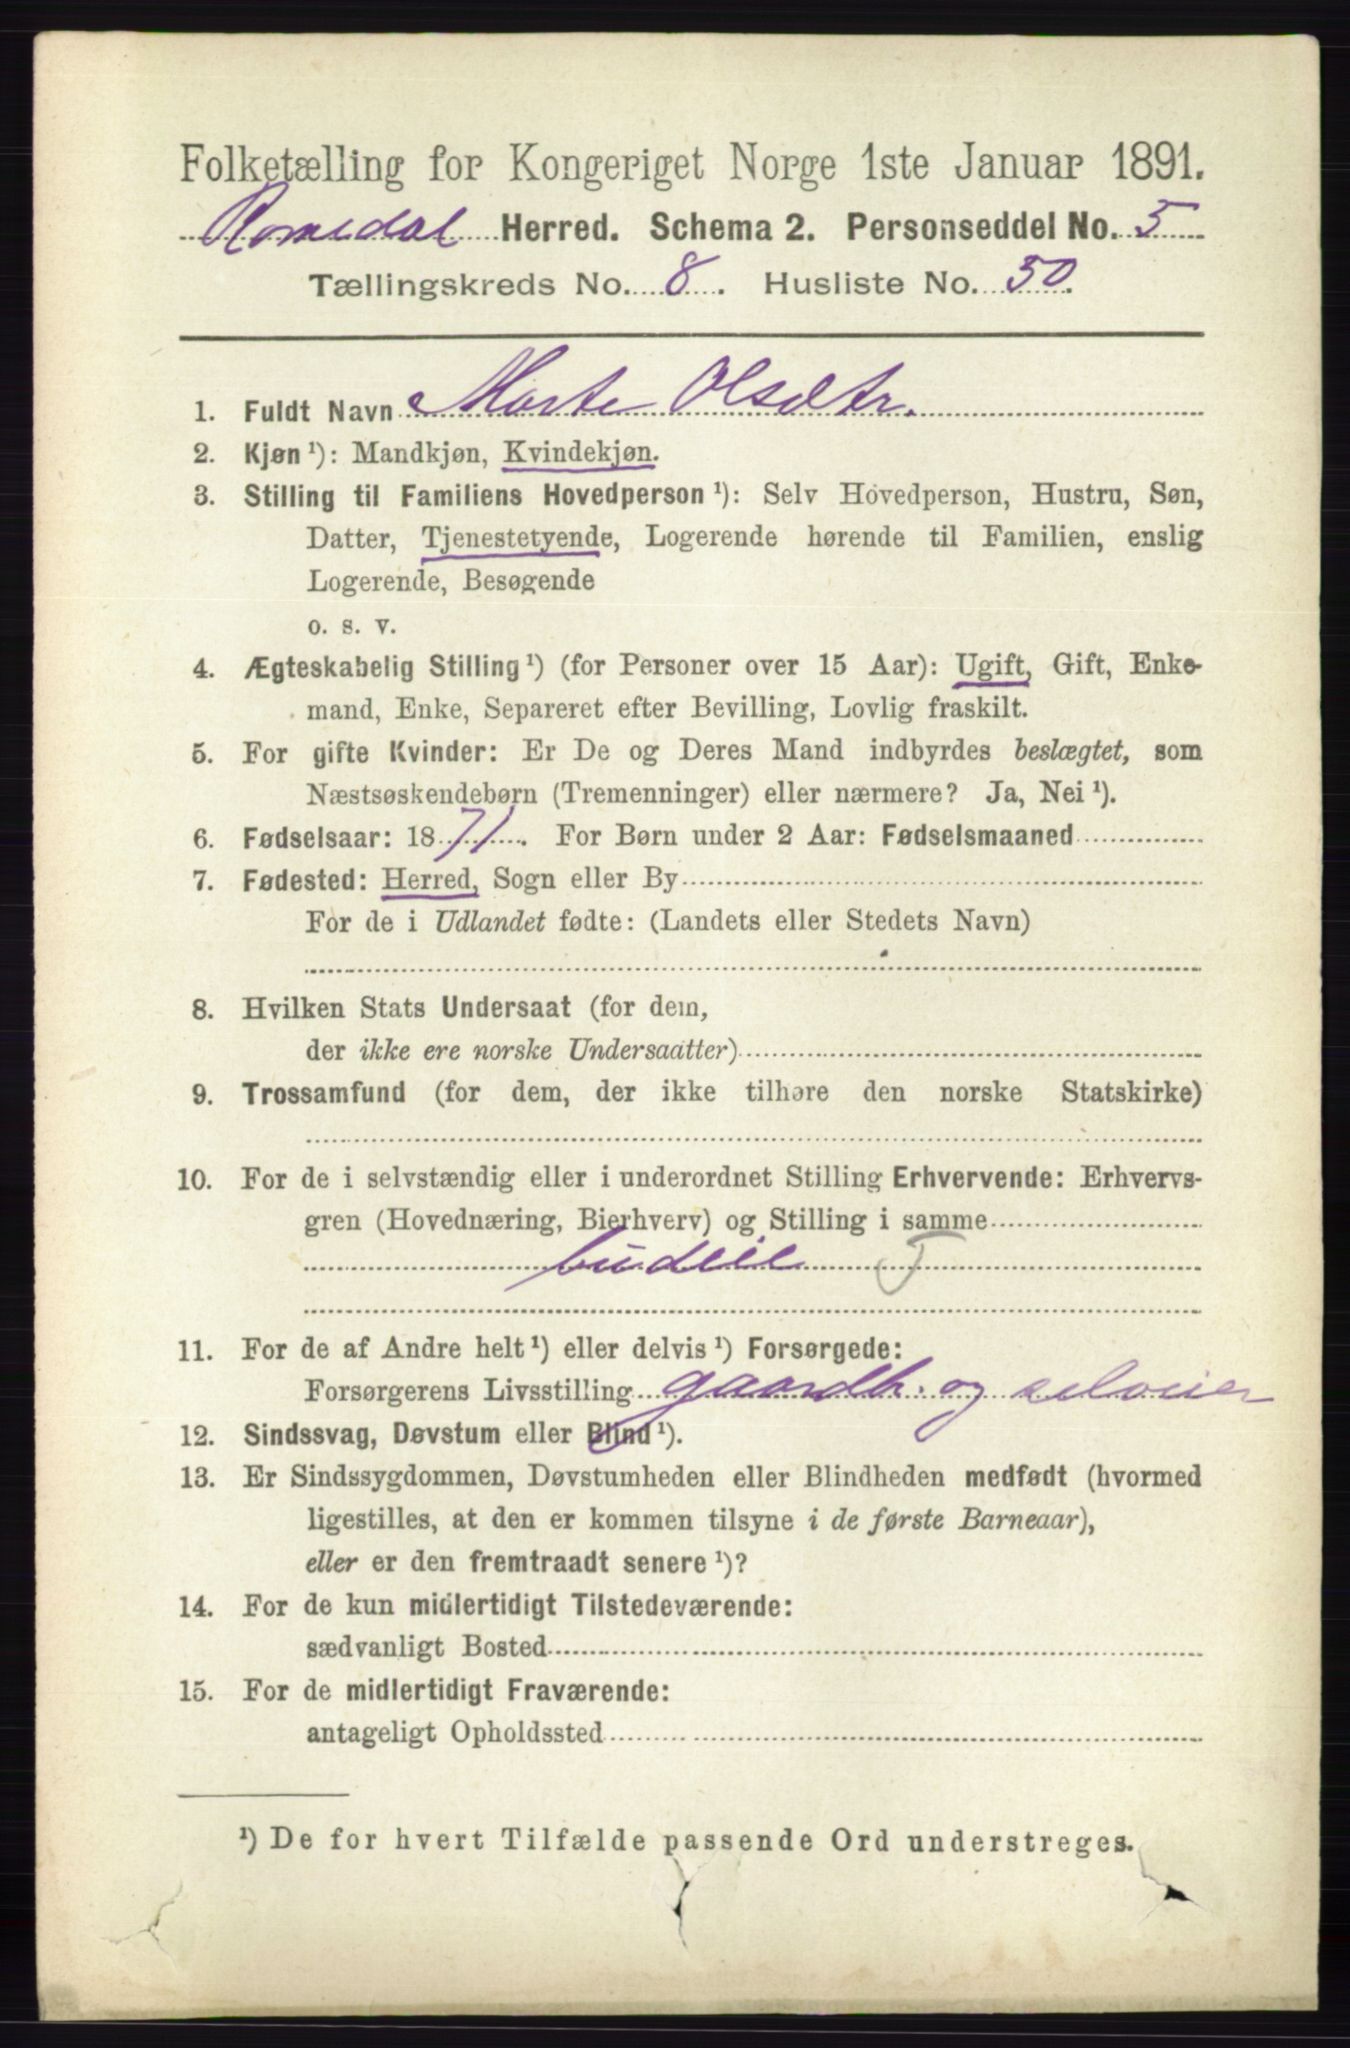 Folketælling for Kongeriget Norge 1ste Januar 1891.
Romedal Herred. Schema 2. Personseddel No. 5
Tællingskreds No. 8. Husliste No. 50.
1. Fuldt Navn Marte Olsdtr.
2. Kjøn ¹): Mandkjøn, Kvindekjøn.
3. Stilling til Familiens Hovedperson ¹): Selv Hovedperson, Hustru, Søn,
Datter, Tjenestetyende, Logerende hørende til Familien, enslig
Logerende, Besøgende
o. s. v.
4. Ægteskabelig Stilling ¹) (for Personer over 15 Aar): Ugift, Gift, Enke-
mand, Enke, Separeret efter Bevilling, Lovlig fraskilt.
5. For gifte Kvinder: Er De og Deres Mand indbyrdes beslægtet, som
Næstsøskendebørn (Tremenninger) eller nærmere? Ja, Nei ¹).
6. Fødselsaar: 1871. For Børn under 2 Aar: Fødselsmaaned
7. Fødested: Herred, Sogn eller By
For de i Udlandet fødte: (Landets eller Stedets Navn)
8. Hvilken Stats Undersaat (for dem,
der ikke ere norske Undersaatter)
9. Trossamfund (for dem, der ikke tilhøre den norske Statskirke)
10. For de i selvstændig eller i underordnet Stilling Erhvervende: Erhvervs-
gren (Hovednæring, Bierhverv) og Stilling i samme
budeie T
11. For de af Andre helt ¹) eller delvis ¹) Forsørgede:
Forsørgerens Livsstilling gaardb. og selveier
12. Sindssvag, Døvstum eller Blind ¹).
13. Er Sindssygdommen, Døvstumheden eller Blindheden medfødt (hvormed
ligestilles, at den er kommen tilsyne i de første Barneaar),
eller er den fremtraadt senere ¹)?
14. For de kun midlertidigt Tilstedeværende:
sædvanligt Bosted
15. For de midlertidigt Fraværende:
antageligt Opholdssted
¹) De for hvert Tilfælde passende Ord understreges.